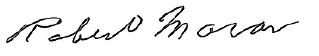 Robert Moran